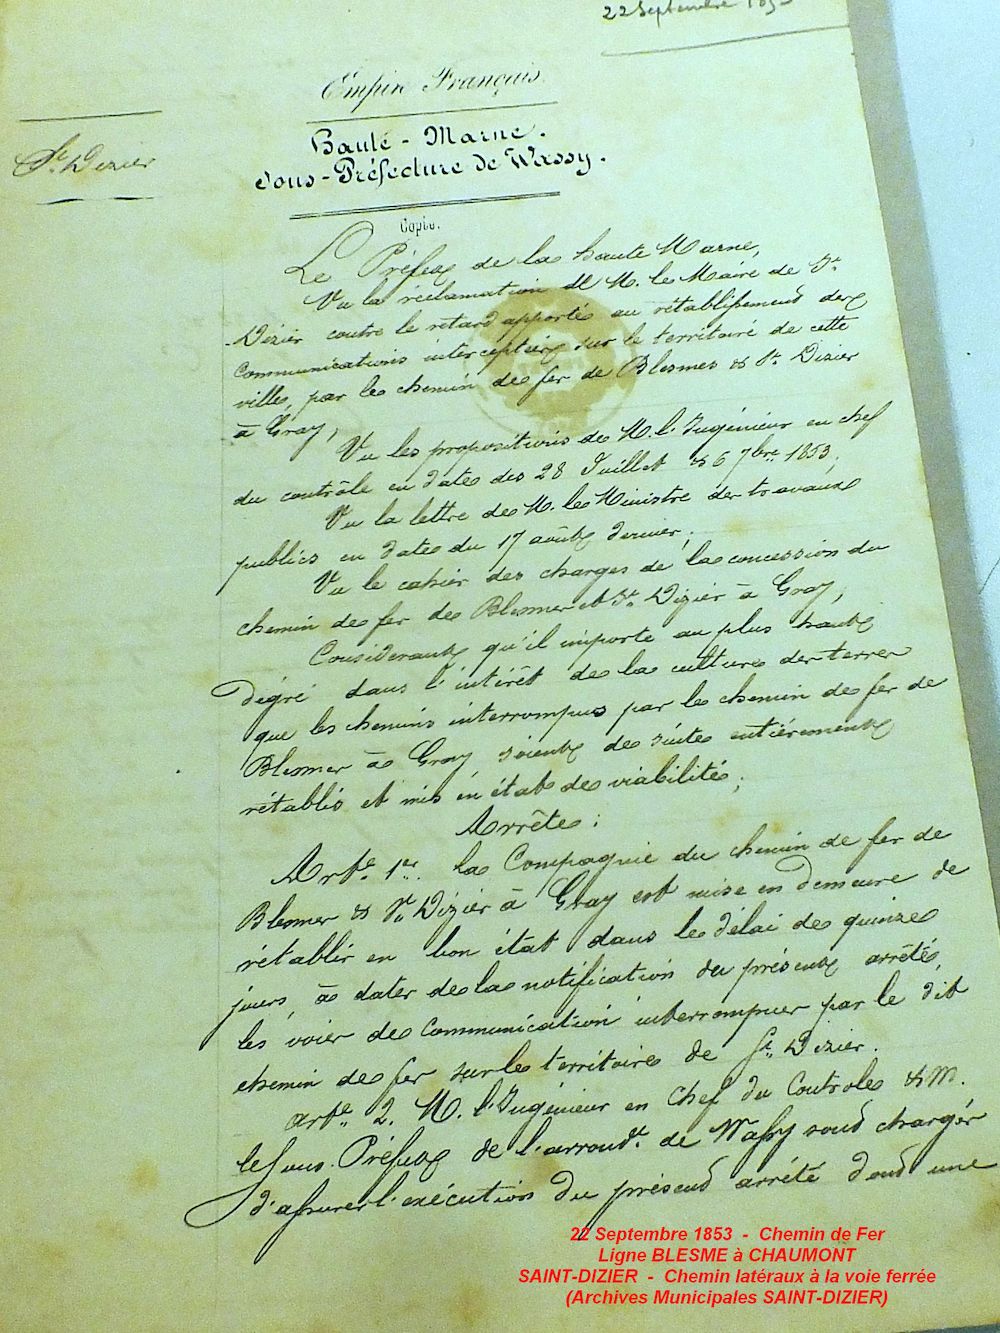 22 Septembre 1853
Empire Français.
St. Dizier
Haute - Marne.
Sous - Préfecture de Wassy.
Copie.
Le Préfet de la haute Marne,
Vu la réclamation de M. le Maire de St.
Dizier contre le retard apporté au rétablissement des
communications interceptées sur le territoire de cette
ville, par le chemin de fer de Blesmes & St. Dizier
à Gray,
Vu les propositions de M. l'Ingénieur en chef
du contrôle en date des 28 Juillet & 6 7bre 1853;
Vu la lettre de M. le Ministre des travaux
publics en date du 17 août dernier;
Vu le cahier des charges de la concession du
chemin de fer de Blesmes et St. Dizier à Gray,
Considerant qu'il importe au plus haut
dégré dans l'intérêt de la culture des terres
que les chemins interrompus par le chemin de fer de
Blesmes à Gray soient de suite entiérement
rétablis et mis en état de viabilité;
Arrête:
Art. 1er. la Compagnie du chemin de fer de
Blesmes & St. Dizier à Gray est mise en demeure de
rétablir en bon état dans le délai de quinze
jours, à dater de la notification du présent arrêté,
les voies de communication interrompues par le dit
chemin de fer sur le territoire de St. Dizier.
art. 2. M. l'Ingénieur en Chef du Controle & M.
le Sous. Préfet de l'arrondt. de Wassy sont chargés
d'assurer l'exécution du présent arrêté dont une
22 Septembre 1853 - Chemin de Fer
Ligne BLESME à CHAUMONT
SAINT-DIZIER - Chemin latéraux à la voie ferrée
(Archives Municipales SAINT-DIZIER)